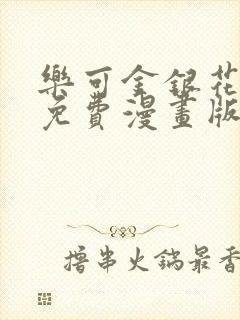 樂可金銀花
免費漫畫版
擼串火鍋最香